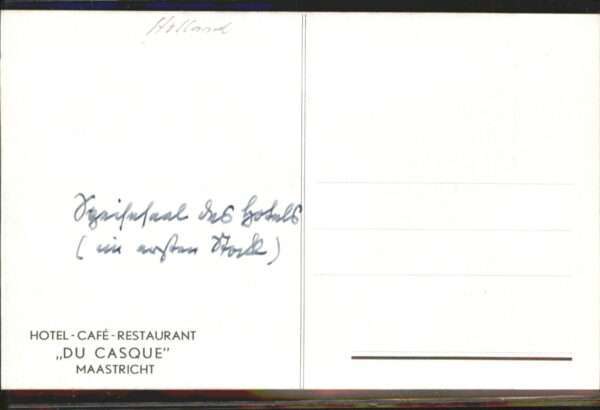 Holland
Speisesaal des Hotels
(im ersten Stock)
HOTEL-CAFÉ-RESTAURANT
„DU CASQUE"
MAASTRICHT